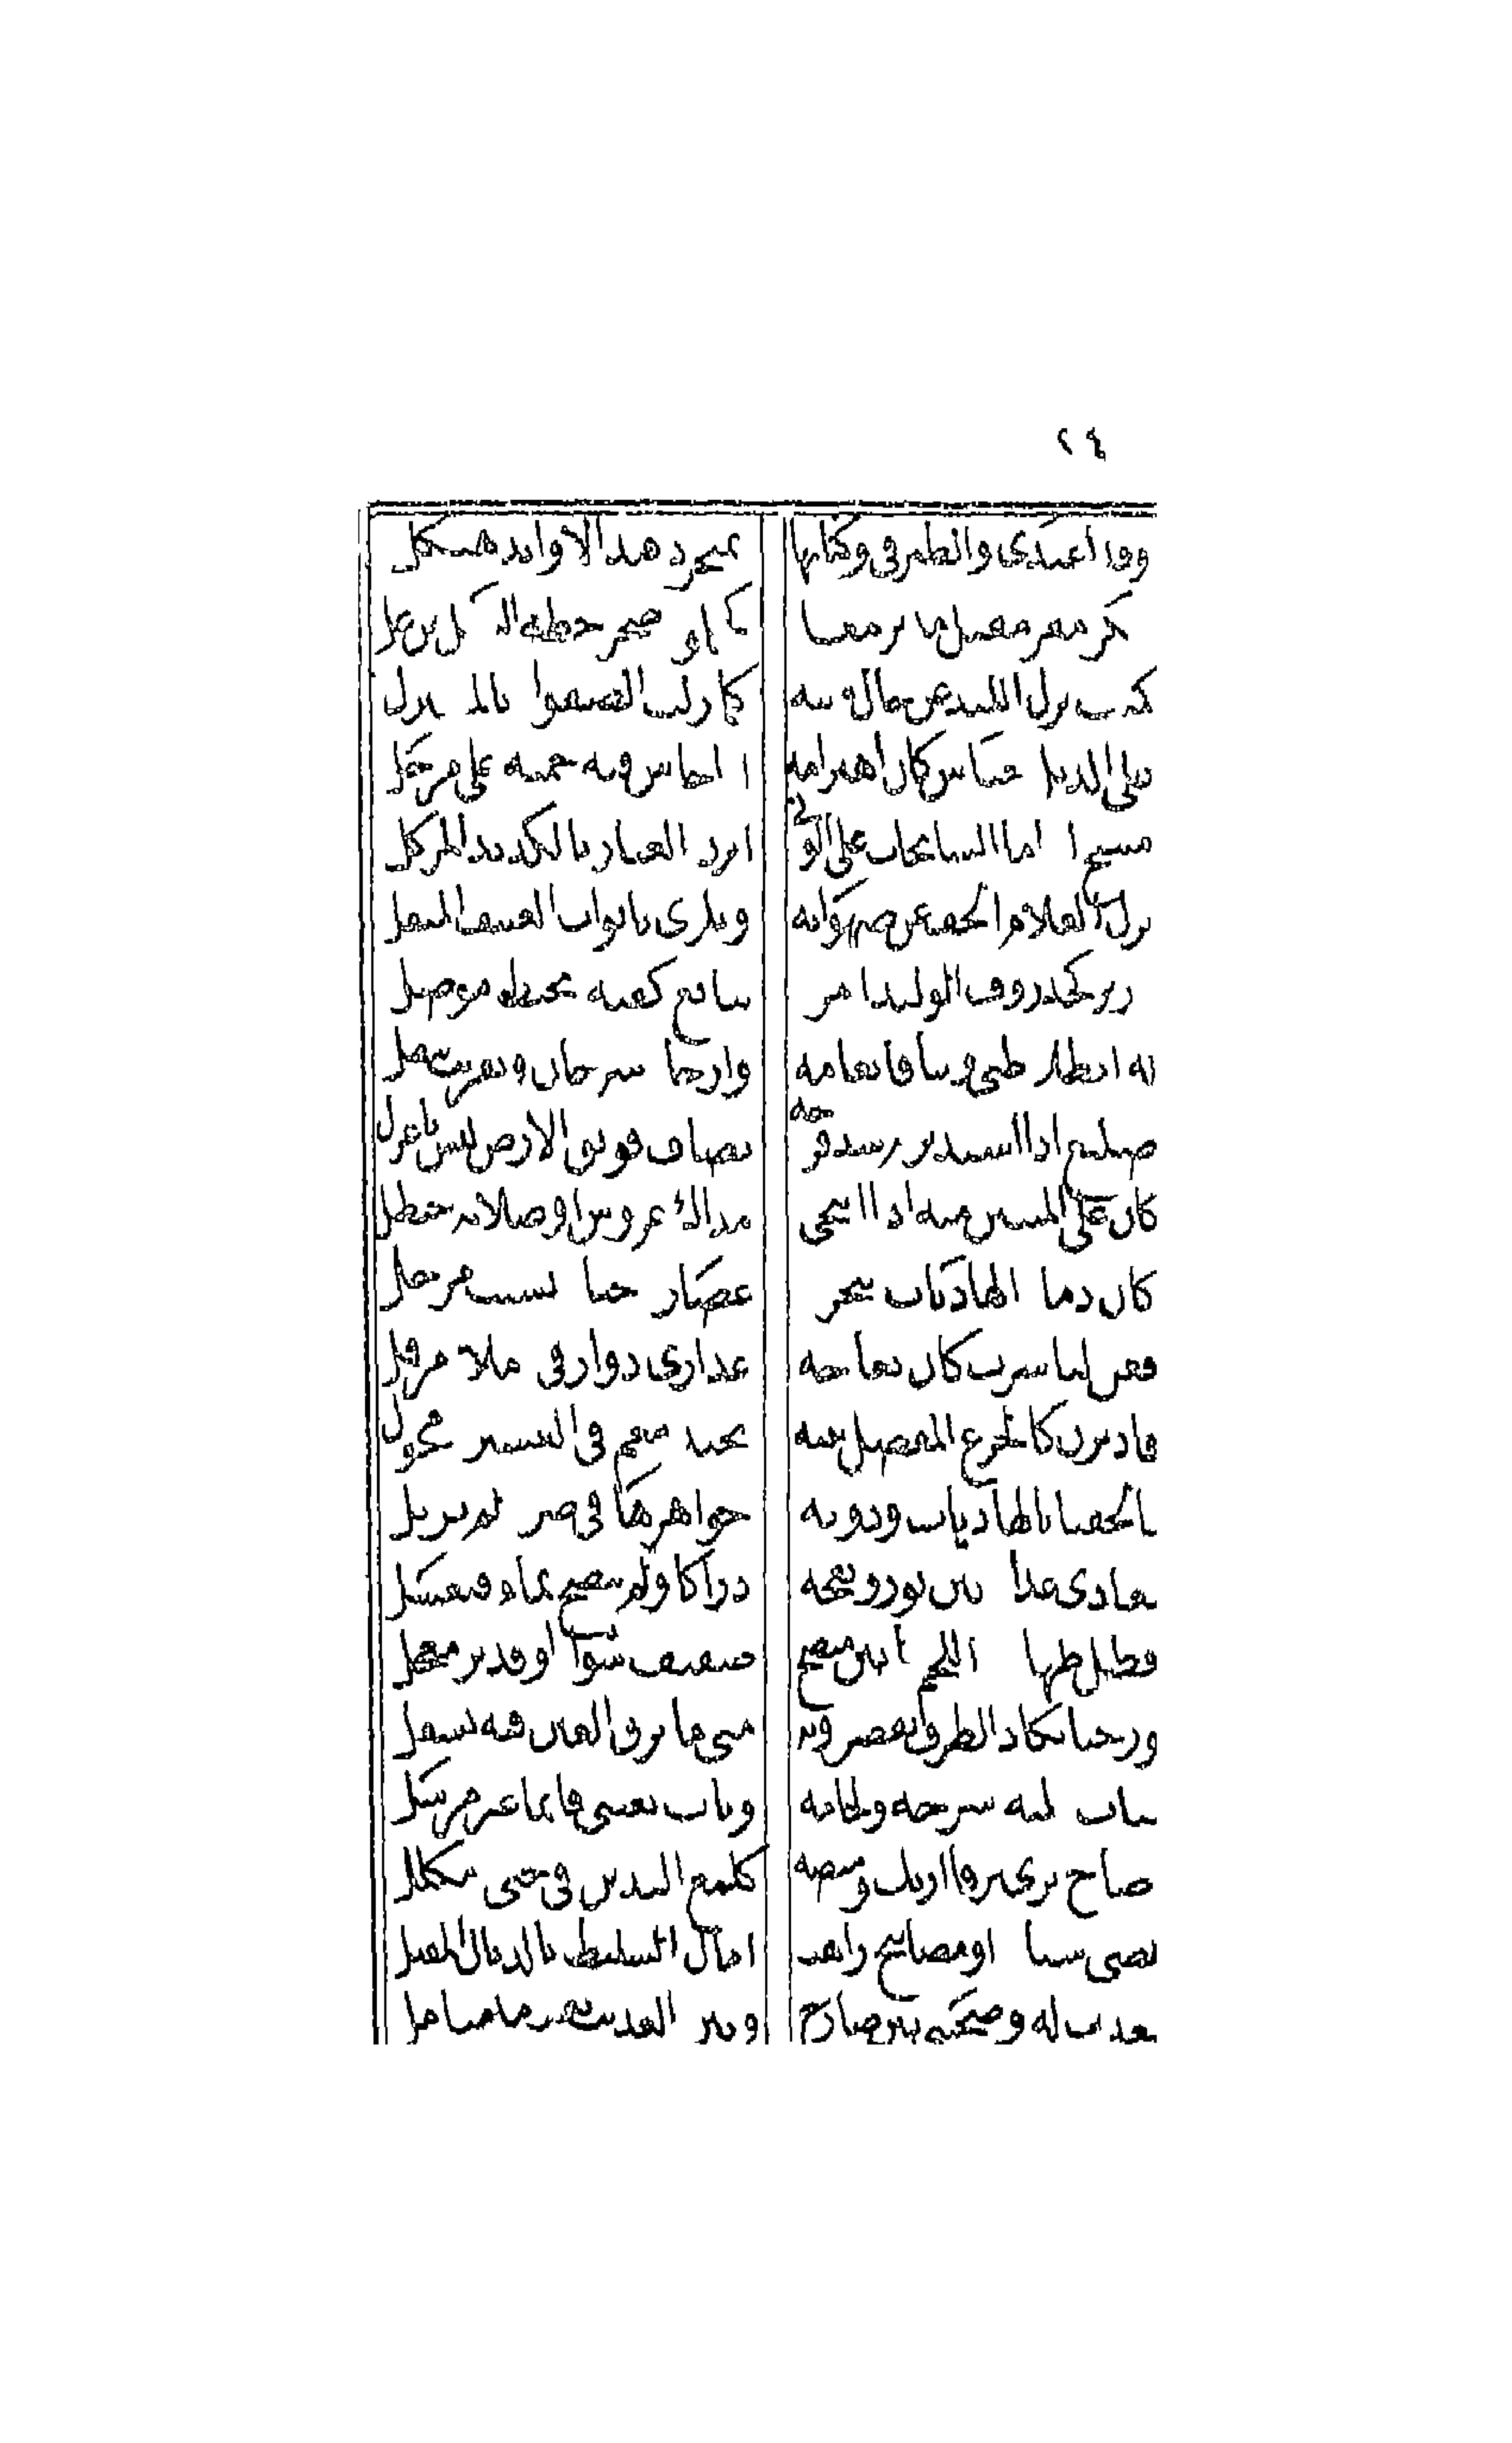 ٢٤
وقد اغتدى والطير فى وكناتها بمنجرد قيد الاوابد هيكل
مكر مفر مقبل مدبر معا كجلمود صخر حطه السيل من عل
كميت يزل اللبد عن حال متنه كما زلت الصفواء بالمتنزل
على الذبل جياش كان اهتزامه اذا جاش فيه حميه على مرجل
مسح اذا ما السابحات على الونى اثرن الغبار بالكديد المركل
يزل الغلام الخف عن صهواته ويلوى باثواب العنيف المثقل
درير كخذروف الوليد امره تتابع كفيه بخيط موصل
له ايطلا ظبى وساقا نعامه وارخاء سرحان وتقريب تتفل
ضليع اذا استدبرته سد فرجه بضاف فويق الارض ليس باعزل
كان على المتنين منه اذا انتحى مداك عروس او صلاية حنظل
كان دماء الهاديات بنحره عصارة حناء بشيب مرجل
فعن لنا سرب كان نعاجه عذارى دوار فى ملاء مذيل
فادبرن كالجزع المفصل بينه بجيد معم فى العشيرة مخول
فالحقنا بالهاديات ودونه جواحرها فى صرة لم تزيل
فعادى عداء بين ثور ونعجه دراكا ولم ينضح بماء فيغسل
فظل طهاة اللحم من بين منضج صفيف شواء او قدير معجل
ورحنا يكاد الطرف يقصر دونه متى ما ترق العين فيه تسفل
فبات عليه سرجه ولجامه وبات بعينى قائما غير مرسل
اصاح ترى برقا اريك وميضه كلمع اليدين فى حبى مكلل
يضىء سناه او مصابيح راهب امال السليط بالذبال المفتل
قعدت له وصحبتى بين ضارج وبين العذيب بعد ما متامل